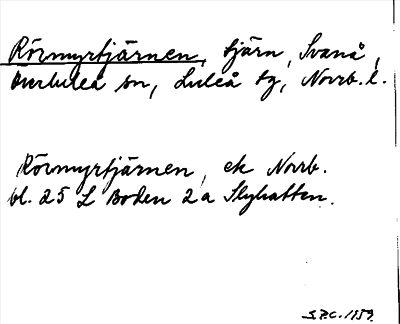 Rörmyrtjärnen, tjärn, Svanå,
Överluleå sn, Luleå tg, Norrb. l.
Rörmyrtjärnen, ek Norrb.
bl. 25 L Boden 2a Slyhatten.
S.P.C. 1959.